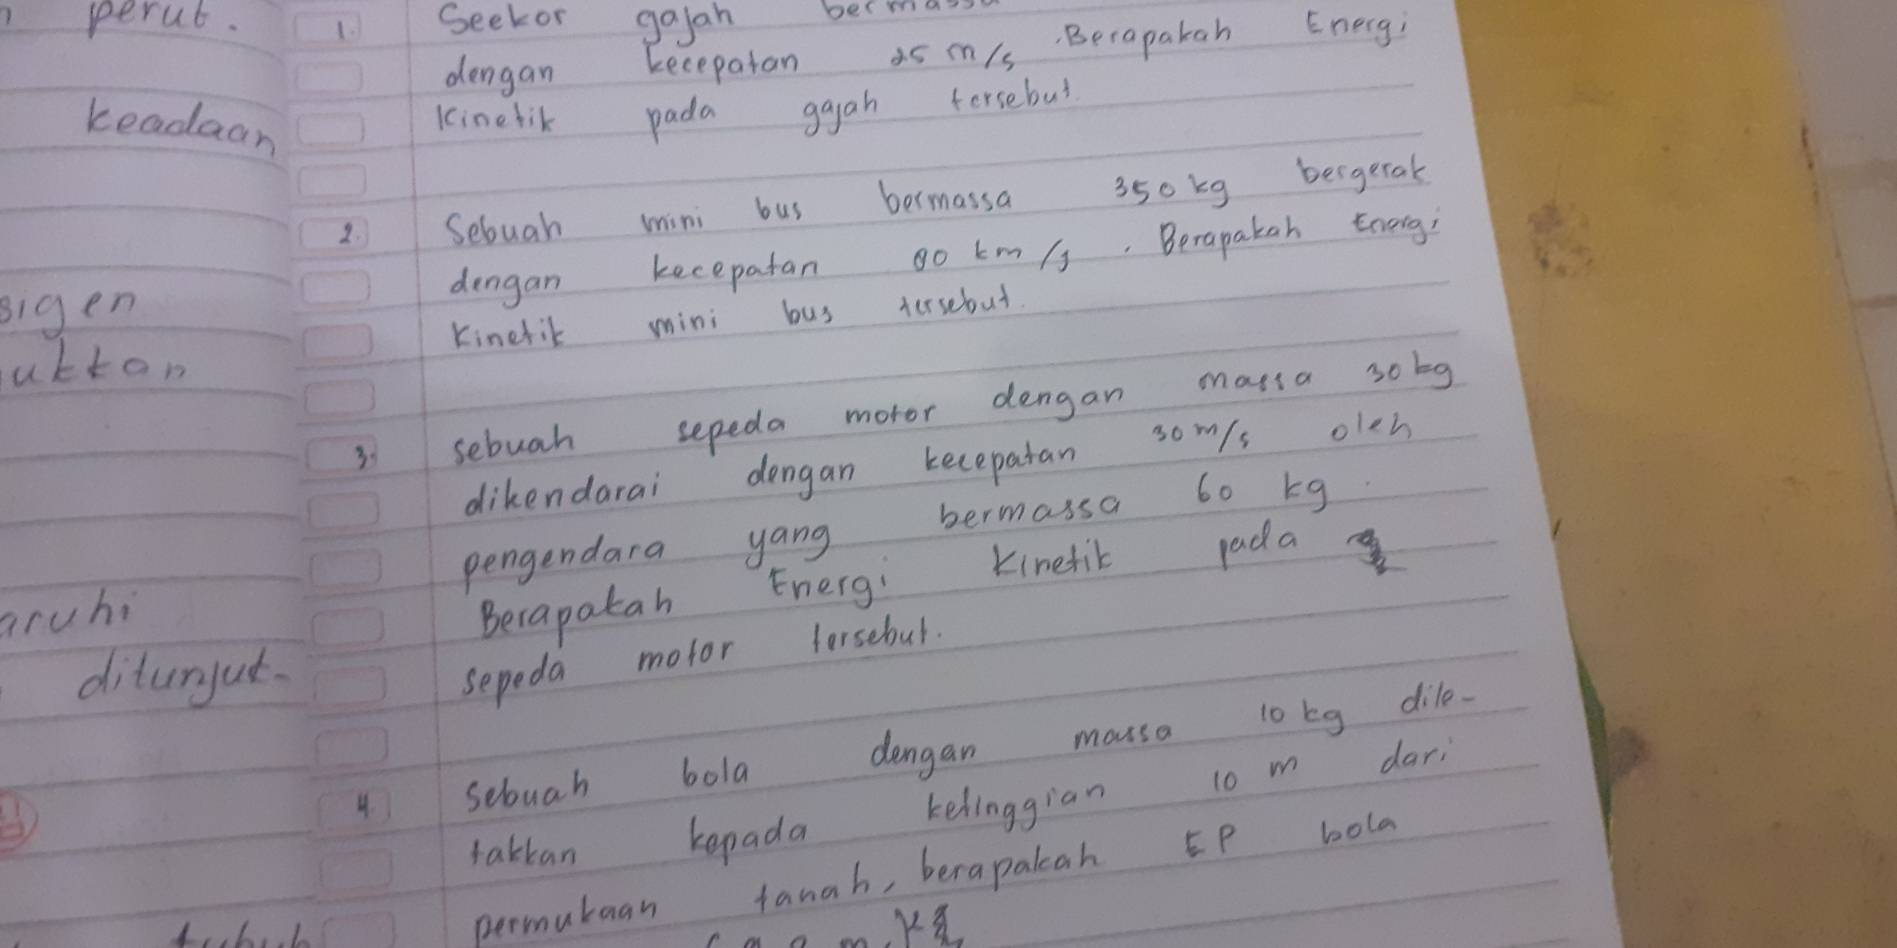 perut.
keadaan
sigen
ukkan
aruhi
ditunjuk-
1. Seekor gajah
dengan kecepatan 25 m/s. Berapakah Energi
Kinetik pada gajah tersebut.
2. Sebuah mini bus bermassa 350 kg bergerak
dengan kecepatan 90 km/s. Berapakah Energi
Kinetik mini bus tersebut.
3. sebuah sepeda motor dengan massa 30 kg
dikendarai dengan kecepatan 30 m/s oleh
pengendara yang bermassa 60 kg.
Berapakah Energi Kinetik pada
sepeda motor tersebut.
4. sebuah bola dengan massa 10 kg dile-
takkan kepada ketinggian 10 m dari
permukaan tanah, berapakah EP bola